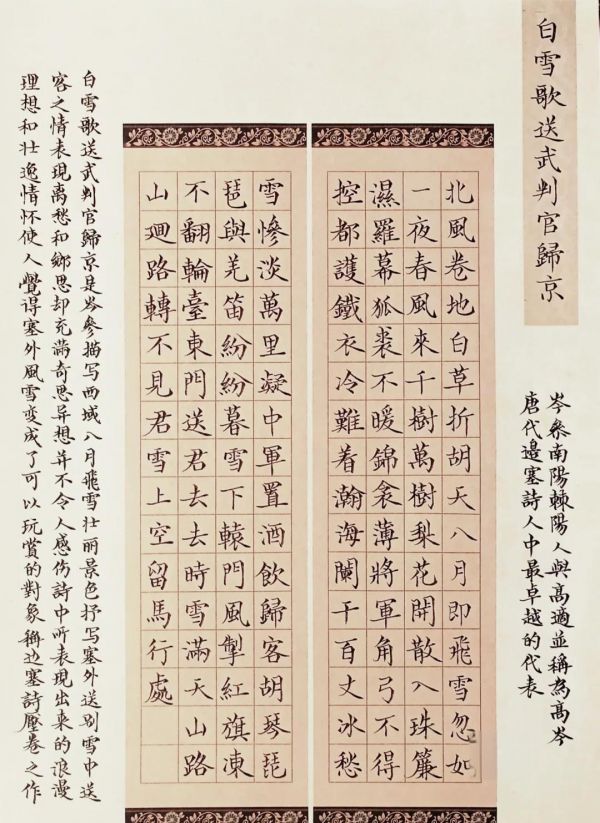 白雪歌送武判官歸京
岑參南陽棘陽人與高適並稱為高岑
唐代邊塞詩人中最卓越的代表
北風卷地白草折胡天八月即飛雪忽如
一夜春風來千樹萬樹梨花開散入珠簾
濕羅幕狐裘不暖錦衾薄將軍角弓不得
控都護鐵衣冷難着瀚海闌干百丈冰愁
雪慘淡萬里凝中軍置酒飲歸客胡琴琵
琶與羌笛紛紛暮雪下轅門風掣紅旗凍
不翻輪臺東門送君去去時雪滿天山路
山迴路轉不見君雪上空留馬行處
白雪歌送武判官歸京是岑參描写西域八月飛雪壮丽景色抒写塞外送别雪中送
客之情表現离愁和鄉思却充滿奇思异想并不令人感伤詩中所表現出来的浪漫
理想和壮逸情怀使人覺得塞外風雪变成了可以玩赏的對象稱边塞詩壓卷之作